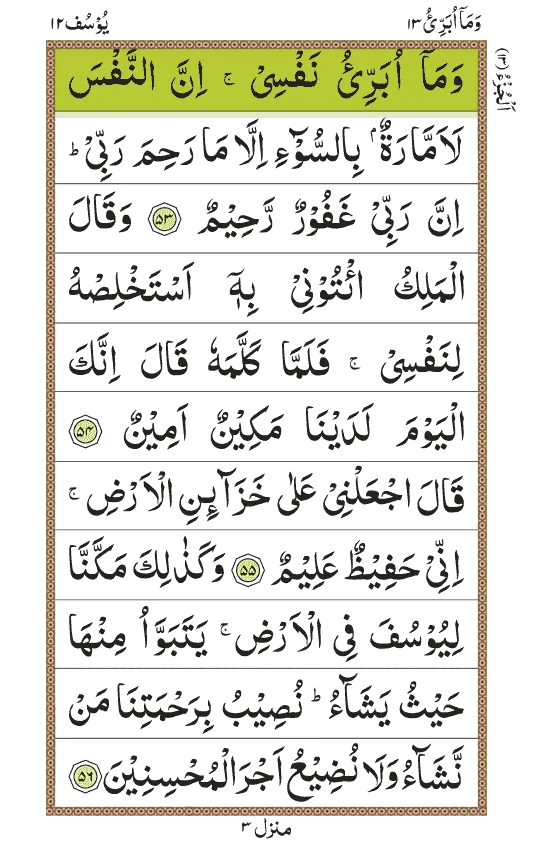 وَمَاۤ اُبَرِّئُ ۱۳
يُوْسُف ۱۲
اَلْجُزْءُ (۱۳)
وَمَاۤ اُبَرِّئُ نَفْسِیْ ۚ اِنَّ النَّفْسَ
لَاَمَّارَةٌۢ بِالسُّوْٓءِ اِلَّا مَا رَحِمَ رَبِّیْ ؕ
اِنَّ رَبِّیْ غَفُوْرٌ رَّحِیْمٌ ۵۳ وَقَالَ
الْمَلِكُ ائْتُوْنِیْ بِهٖۤ اَسْتَخْلِصْهُ
لِنَفْسِیْ ۚ فَلَمَّا كَلَّمَهٗ قَالَ اِنَّكَ
الْیَوْمَ لَدَیْنَا مَكِیْنٌ اَمِیْنٌ ۵۴
قَالَ اجْعَلْنِیْ عَلٰی خَزَآىِٕنِ الْاَرْضِ ۚ
اِنِّیْ حَفِیْظٌ عَلِیْمٌ ۵۵ وَكَذٰلِكَ مَكَّنَّا
لِیُوْسُفَ فِی الْاَرْضِ ۚ یَتَبَوَّاُ مِنْهَا
حَیْثُ یَشَآءُ ؕ نُصِیْبُ بِرَحْمَتِنَا مَنْ
نَّشَآءُ وَلَا نُضِیْعُ اَجْرَ الْمُحْسِنِیْنَ ۵۶
منزل ۳